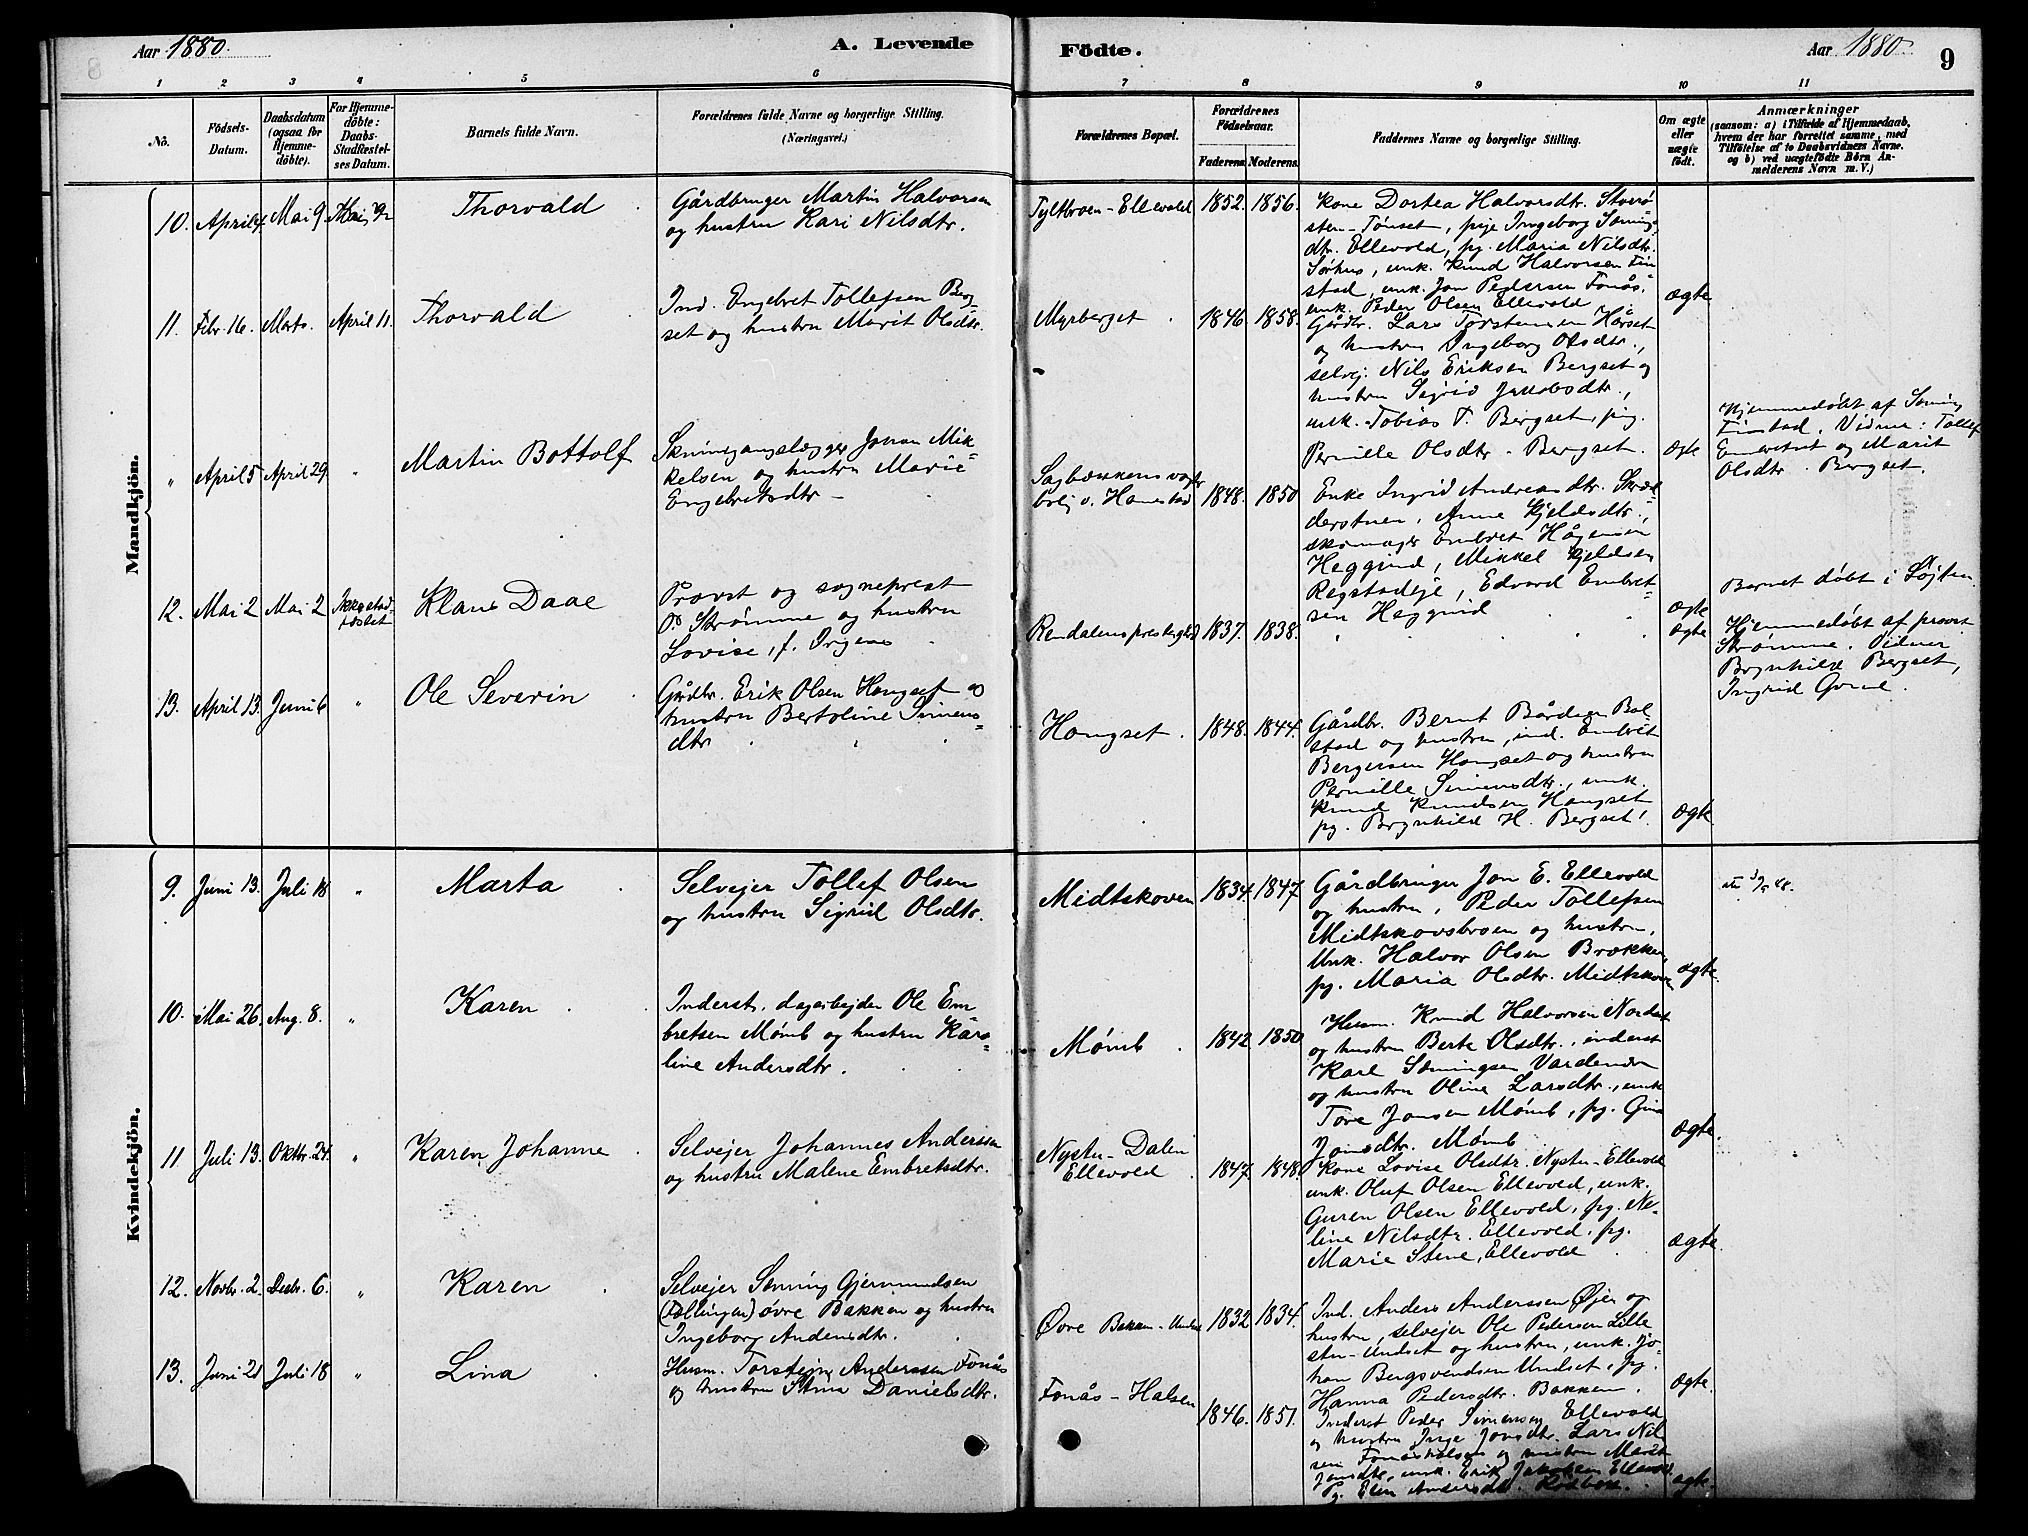 8
Aar 1880.
A. Levende
Födte.
Aar 1880.
9
1 2 3 4 5 6 7 8 9 10 11
No.
Födsels-
Datum.
Daabsdatum
(ogsaa for
Hjemme-
döbte).
For Hjemme-
döbte:
Daabs-
Stadfæstel-
ses Datum.
Barnets fulde Navn.
Forældrenes fulde Navne og borgerlige Stilling.
(Næringsvei.)
Forældrenes Bopæl.
Forældrenes
Födselsaar.
Faderens. Moderens.
Faddernes Navne og borgerlige Stilling.
Om ægte
eller
uægte
födt.
Anmærkninger
(saasom: a) i Tilfælde af Hjemmedaab,
hvem der har forrettet samme, med
Tilföielse af to Daabsvidners Navne.
og b) ved uægtefödte Börn An-
melderens Navn m. V.)
Mandkjön.
10. April 4. Mai 9. Mai 9.
Thorvald
Gårdbruger Martin Halvorsen
og hustru Kari Nilsdtr.
Tyltbroen-Ellevold 1852. 1856.
Kone Dortea Halvorsdtr. Storö
sten-Tønset, pige Ingeborg Søming
dtr. Ellevold, pg. Maria Nilsdtr.
Sørhus, unk. Knud Halvorsen Fin
stad, unk. Jon Pedersen Fonås,
unk. Peder Olsen Ellevold
ægte
11. Febr 16. Marts. April 11.
Thorvald
Ind. Engebret Tollefsen Berg-
set og hustru Marit Olsdtr.
Myrberget. 1846 1858.
Gårdbr. Lars Torstensen Hårset
og hustru Ingeborg Olsdtr.,
selvej. Nils Eriksen Bergset og
hustru Sigrid Jakobsdtr.,
unk. Tobias T. Bergset, pig.
Pernille Olsdtr. Bergset.
ægte
Hjemmedøbt af Søming
Finstad. Vidner: Tollef
Embretsen og Marit
Olsdtr. Bergset.
" April 5 April 29 "
Martin Bottolf
Skinnegangslægger Johan Mik-
kelsen og hustru Marie
Engebretsdtr.
Sagbækkens vogter
bolig v. Hanestad 1848. 1850
Enke Ingrid Andreasdtr. Skræd-
derstuen, Anne Kjeldsdtr.,
skomager Embret Hågensen
Heggind, Mikkel Kjeldsen
Regstadeje, Edvard Embret-
sen Heggind
ægte
Barnet døbt i Løjten.
12. Mai 2 Mai 2 Ikke stad-
fæstet
Klaus Daae
Provst og sogneprest
P. Strømme og hustru
Lovise, f. Irgens.
Rendalens prestegård 1837. 1838.
" " "
ægte
Hjemmedøbt af provst
Strømme. Vidner
Brynhild Bergset,
Ingrid
13. April 13. Juni 6 "
Ole Severin
Gårdbr. Erik Olsen Hangset og
hustru Bertoline Simens-
dtr.
Hangset. 1848. 1844.
Gårdbr. Bernt Bårdsen Bol-
stad og hustru, ind. Embret
Bergersen Hangset og hustru
Pernille Simensdtr., unk.
Knud Knudsen Hangset
pg. Brynhild H. Bergset.
ægte.
Kvindekjön.
9. Juni 13. Juli 18 "
Marta
Selvejer Tollef Olsen
og hustru Sigrid Olsdtr.
Midtskoven 1834. 1847
Gårdbruger Jon E. Ellevold
og hustru, Peder Tollefsen
Midtskovsbroen og hustru,
Unk. Halvor Olsen Brækken,
pg. Maria Olsdtr. Midtskoven
ægte.
48.
10. Mai 26. Aug. 8. "
Karen
Inderst, dagarbejder Ole Em-
bretsen Mømb og hustru Karo-
line Andersdtr.
Mømb. 1842 1850
Husm. Knud Halvorsen Nordset
og hustru Berte Olsdtr., inderst
Karl Sæmingsen Vardenden
og hustru Oline Larsdtr., unk
Tore Jonsen Mømb, pg. Gina
Jonsdtr. Mømb
ægte.
11 Juli 13. Oktbr. 24. "
Karen Johanne
Selvejer Johannes Anderssen
og hustru Malene Embretsdtr.
Nystu-Dalen
Ellevold. 1847. 1848.
Kone Lovise Olsdtr. Nystu-Ellevold
unk. Oluf Olsen Ellevold, unk.
Guren Olsen Ellevold, pg. Ne-
line Nilsdtr. Ellevold, pg.
Marie Stene, Ellevold
ægte.
12. Novbr. 2. Desbr. 6. "
Karen
Selvejer Søming Gjermundsen
(Fællingen) øvre Bakken og hustru
Ingeborg Andersdtr.
Øvre Bakken-Undset 1832 1834.
Ind. Anders Anderssen Øjen og
hustru, selvejer Ole Pedersen Lille
stu-Undset og hustru, unk. Jo-
han Bergsvendsen Undset, pg.
Hanna Pedersdtr. Bakken.
ægte.
13. Juni 21 Juli 18 "
Lina
Husm. Torstein Anderssen Fonås
og hustru Stina Danielsdtr.
Fonås-Halsen 1846. 1851.
Inderst Peder Simensen Ellevold
og hustru Inge Jonsdtr. Lars Nil
sen Fonåshalsen og hustru Marit
Jonsdtr., unk. Erik Jakobsen Ellevold.
Pg. Elen Andersdtr.
ægte.